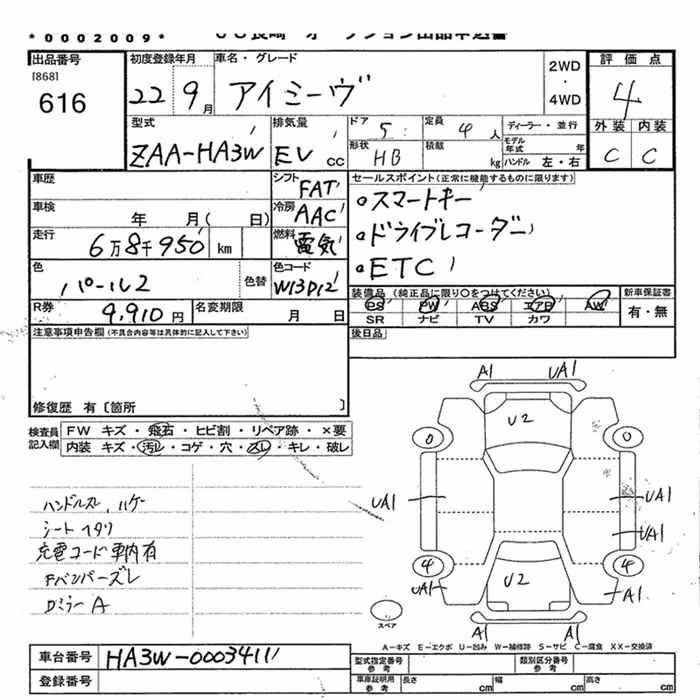 *0002009*
出品番号
[868]
616
初度登録年月
22 9月
車名・グレード
アイミーヴ
2WD
・
4WD
評価点
4
外装 内装
C C
型式
ZAA-HA3W
排気量
EV cc
ドア 5
定員 4 人
ディーラー・並行
形状 HB
積載 kg
モデル年式 年
ハンドル 左・右
車歴
シフト FAT
セールスポイント(正常に機能するものに限ります)
スマートキー
ドライブレコーダー
ETC
車検 年 月( 日)
冷房 AAC
走行 6万8千950 km
燃料 電気
色 パール2
色替
色コード W13D12
R券 9,910円
名変期限 月 日
装備品 (純正品に限り○をつけてください)
PS PW ABS エアB AW
SR ナビ TV カワ
新車保証書
有・無
注意事項申告欄(不具合内容等は具体的に記入して下さい)
後日品
修復歴 有〔箇所 〕
検査員記入欄
FW キズ・飛石・ヒビ割・リペア跡・×要
内装 キズ・汚レ・コゲ・穴・スレ・キレ・破レ
ハンドルスレ, ハゲ
シートヘタリ
充電コード車内有
Fバンパーズレ
Dミラー A
A1 UA1
U2
0 0
UA1 UA1
UA1
4 4
UA1 U2 A1
A1 A1
スペア
A-キズ E-エクボ U-凹み W-補修跡 S-サビ C-腐食 XX-交換済
車台番号 HA3W-0003411
登録番号
型式指定番号 参考
類別区分番号 参考
車庫証明用 参考
長さ cm
幅 cm
高さ cm